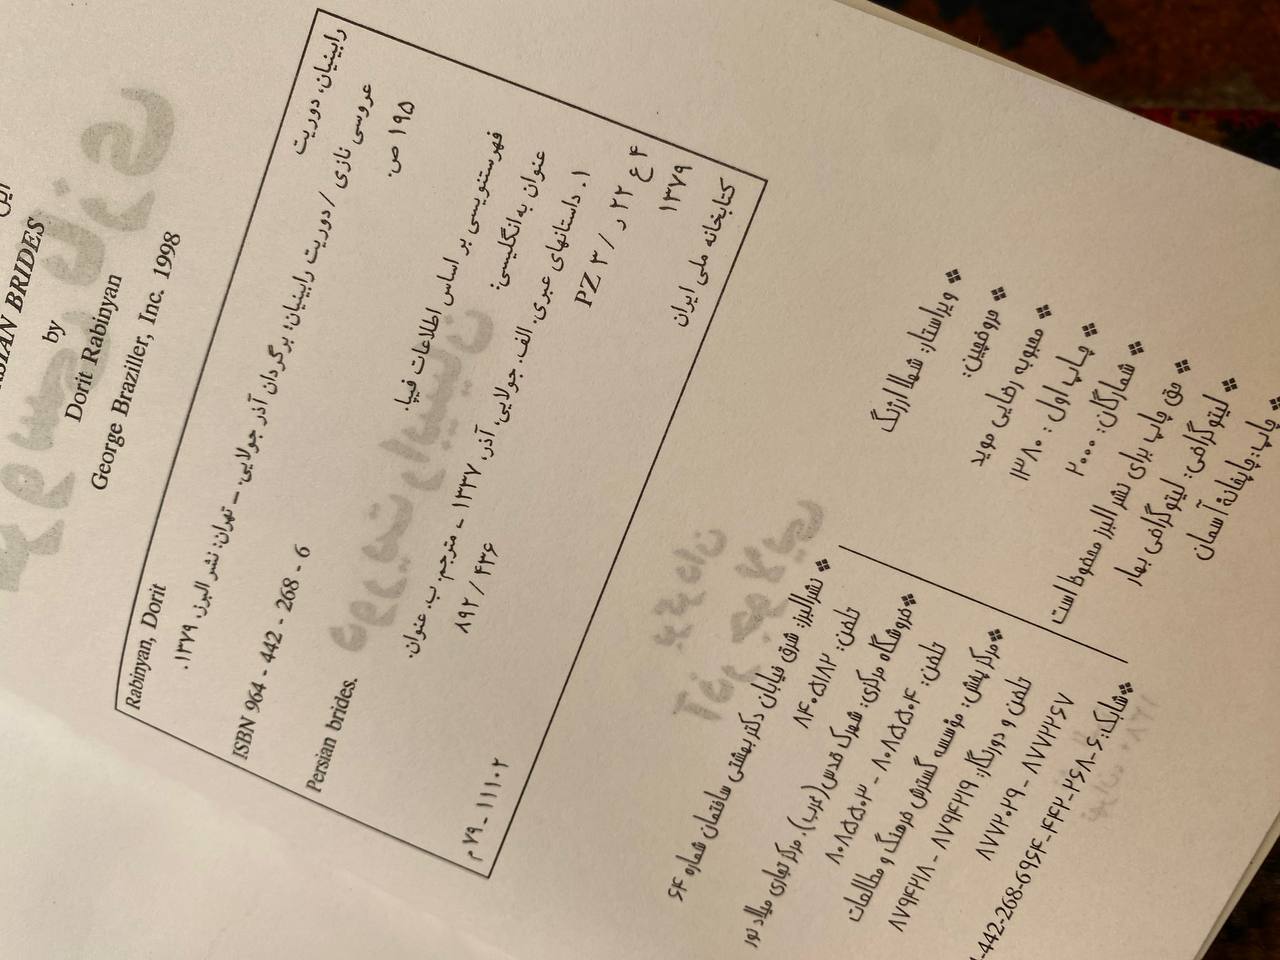 این
PERSIAN BRIDES
by
Dorit Rabinyan
George Braziller, Inc. 1998
رابینیان، دوریت
Rabinyan, Dorit
عروسی نازی / دوریت رابینیان؛ برگردان آذر جولایی. – تهران: نشر البرز، ۱۳۷۹.
۱۹۵ ص.
ISBN 964 - 442 - 268 - 6
فهرستنویسی بر اساس اطلاعات فیپا.
عنوان به‌انگلیسی:
Persian brides.
۱. داستانهای عبری. الف. جولایی، آذر، ۱۳۳۷ - مترجم. ب. عنوان.
۴ ع ۲۲ ر / PZ ۳
۸۹۲ / ۴۳۶
۱۳۷۹
کتابخانه ملی ایران
۷۹ - ۱۱۱۰۲ م
❖ ویراستار: شهلا ارژنگ
❖ حروفچین:
محبوبه رضایی موید
❖ چاپ اول: ۱۳۸۰
❖ شمارگان: ۲۰۰۰
❖ حق چاپ برای نشر البرز محفوظ است
❖ لیتوگرافی: لیتوگرافی بهار
❖ چاپ: چاپخانهٔ آسمان
❖ نشر البرز: شرق خیابان دکتر بهشتی ساختمان شماره ۶۴
تلفن: ۸۴۰۵۱۸۲
❖ فروشگاه مرکزی: شهرک قدس (غرب)، مرکز تجاری میلاد نور
تلفن: ۸۰۸۵۵۰۴ - ۸۰۸۵۵۰۳
❖ مرکز پخش: مؤسسه گسترش فرهنگ و مطالعات
تلفن و دورنگار: ۸۷۹۴۲۱۹ - ۸۷۹۴۲۱۸
۸۷۷۲۰۲۹ - ۸۷۷۲۲۶۷
❖ شابک: ۶-۲۶۸-۴۴۲-۹۶۴
-442-268-6